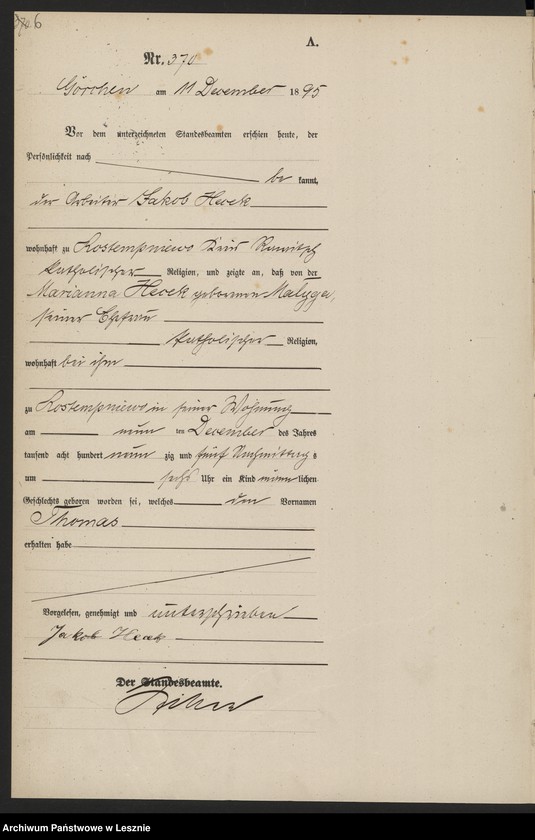 6
A.
Nr. 370
Görchen am 11 December 1895
Vor dem unterzeichneten Standesbeamten erschien heute, der
Persönlichkeit nach
be kannt,
der Arbeiter Jakob Heck
wohnhaft zu Rostempniewo Kreis Rawitsch
katholischer Religion, und zeigte an, daß von der
Marianna Heck geborenen Malyga,
seiner Ehefrau
katholischer Religion,
wohnhaft bei ihm
zu Rostempniewo in seiner Wohnung
am neun ten December des Jahres
tausend acht hundert neun zig und fünf Nachmittag s
um sechs Uhr ein Kind männ lichen
Geschlechts geboren worden sei, welches den Vornamen
Thomas
erhalten habe
Vorgelesen, genehmigt und unterschrieben
Jakob Heck
Der Standesbeamte.
Archiwum Państwowe w Lesznie